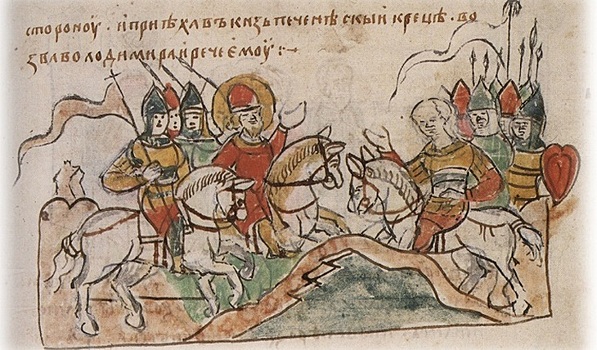 стороноу · и приѣхавъ кнзь печенѣскыи к рецѣ · во
зва володимира и рече емоу :~